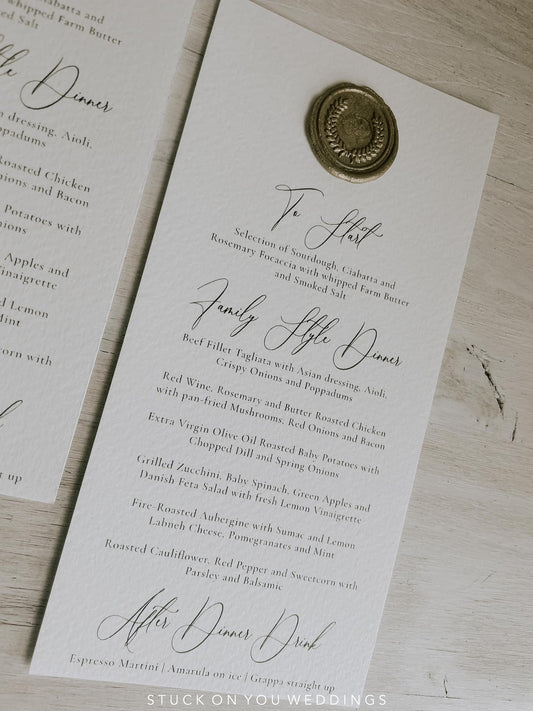 Ciabatta and
whipped Farm Butter
Salt
Style Dinner
dressing, Aioli,
Poppadums
Roasted Chicken
Onions and Bacon
Potatoes with
Onions
Apples and
Vinaigrette
and Lemon
Mint
corn with
up
To Start
Selection of Sourdough, Ciabatta and
Rosemary Focaccia with whipped Farm Butter
and Smoked Salt
Family Style Dinner
Beef Fillet Tagliata with Asian dressing, Aioli,
Crispy Onions and Poppadums
Red Wine, Rosemary and Butter Roasted Chicken
with pan-fried Mushrooms, Red Onions and Bacon
Extra Virgin Olive Oil Roasted Baby Potatoes with
Chopped Dill and Spring Onions
Grilled Zucchini, Baby Spinach, Green Apples and
Danish Feta Salad with fresh Lemon Vinaigrette
Fire-Roasted Aubergine with Sumac and Lemon
Labneh Cheese, Pomegranates and Mint
Roasted Cauliflower, Red Pepper and Sweetcorn with
Parsley and Balsamic
After Dinner Drink
Espresso Martini | Amarula on ice | Grappa straight up
STUCK ON YOU WEDDINGS